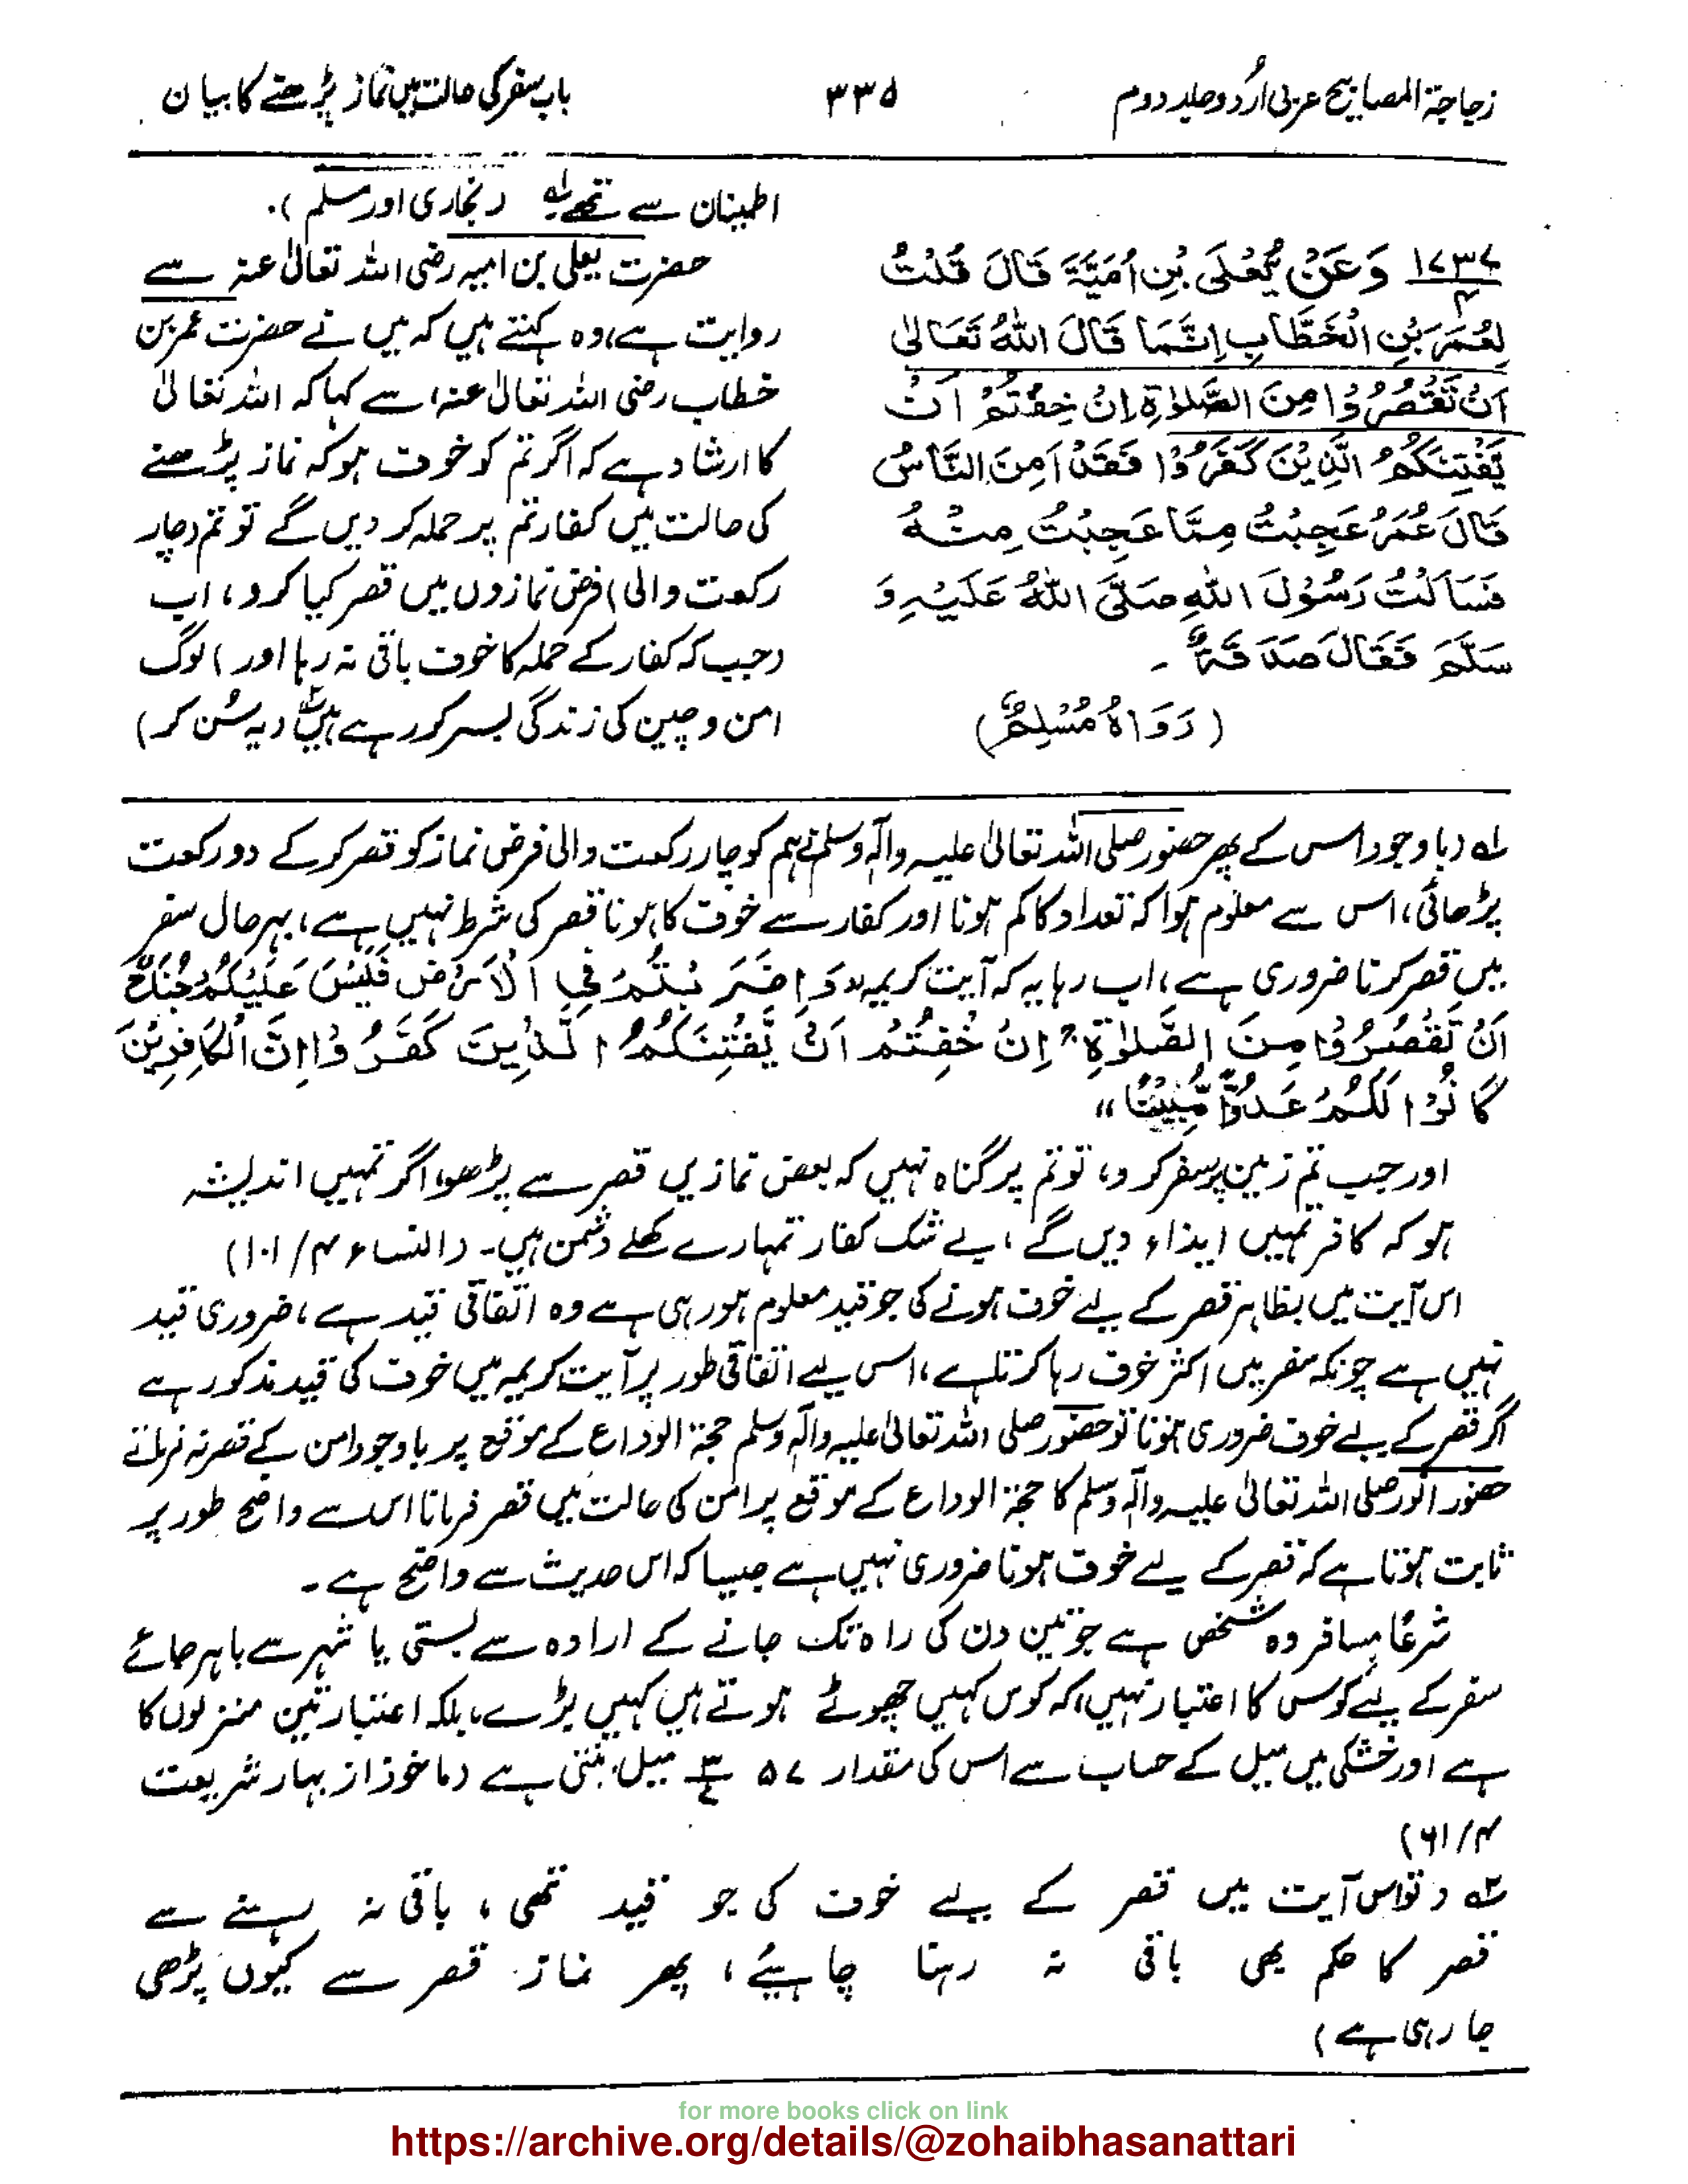 زجاجۃ المصابیح عربی اُردو جلد دوم
۳۳۵
باب سفر کی حالت میں نماز پڑھنے کا بیان
۱۷۳۷
۴
وَعَنْ يَّعْلَى بْنِ اُمَيَّةَ قَالَ قُلْتُ
لِعُمَرَ بْنِ الْخَطَّابِ اِنَّمَا قَالَ اللّٰهُ تَعَالٰى
اَنْ تَقْصُرُوْا مِنَ الصَّلٰوةِ اِنْ خِفْتُمْ اَنْ
يَّفْتِنَكُمُ الَّذِيْنَ كَفَرُوْا فَقَدْ اَمِنَ النَّاسُ
قَالَ عُمَرُ عَجِبْتُ مِمَّا عَجِبْتَ مِنْهُ
فَسَاَلْتُ رَسُوْلَ اللّٰهِ صَلَّى اللّٰهُ عَلَيْهِ وَ
سَلَّمَ فَقَالَ صَدَقَةٌ ۔
(رَوَاهُ مُسْلِمٌ)
اطمینان سے تھے لہ (بخاری اور مسلم)۔
حضرت یعلی بن امیہ رضی اللہ تعالیٰ عنہ سے
روایت ہے، وہ کہتے ہیں کہ میں نے حضرت عمر بن
خطاب رضی اللہ تعالیٰ عنہ، سے کہا کہ اللہ تعالیٰ
کا ارشاد ہے کہ اگر تم کو خوف ہو کہ نماز پڑھنے
کی حالت میں کفار تم پر حملہ کر دیں گے تو تم (چار
رکعت والی) فرض نمازوں میں قصر کیا کرو، اب
(جب کہ کفار کے حملہ کا خوف باقی نہ رہا اور) لوگ
امن و چین کی زندگی بسر کر رہے ہیں ۲ (یہ سُن کر)
لہ (باوجود اس کے پھر حضور صلی اللہ تعالیٰ علیہ وآلہٖ وسلم نے ہم کو چار رکعت والی فرض نماز کو قصر کر کے دو رکعت
پڑھائی، اس سے معلوم ہوا کہ تعداد کا کم ہونا اور کفار سے خوف کا ہونا قصر کی شرط نہیں ہے، بہرحال سفر
میں قصر کرنا ضروری ہے، اب رہا یہ کہ آیت کریمہ "وَاِذَا ضَرَبْتُمْ فِي الْاَرْضِ فَلَيْسَ عَلَيْكُمْ جُنَاحٌ
اَنْ تَقْصُرُوْا مِنَ الصَّلٰوةِ اِنْ خِفْتُمْ اَنْ يَّفْتِنَكُمُ الَّذِيْنَ كَفَرُوْا اِنَّ الْكَافِرِيْنَ
كَانُوْا لَكُمْ عَدُوًّا مُّبِيْنًا"
اور جب تم زمین پر سفر کرو، تو تم پر گناہ نہیں کہ بعض نمازیں قصر سے پڑھو، اگر تمہیں اندیشہ
ہو کہ کافر تمہیں ایذاء دیں گے، بے شک کفار تمہارے کھلے دشمن ہیں۔ (النساء ۴/۱۰۱)
اس آیت میں بظاہر قصر کے لیے خوف ہونے کی جو قید معلوم ہو رہی ہے وہ اتفاقی قید ہے، ضروری قید
نہیں ہے چونکہ سفر میں اکثر خوف رہا کرتا ہے، اس لیے اتفاقی طور پر آیت کریمہ میں خوف کی قید مذکور ہے
اگر قصر کے لیے خوف ضروری ہوتا تو حضور صلی اللہ تعالیٰ علیہ وآلہٖ وسلم حجۃ الوداع کے موقع پر باوجود امن کے قصر نہ فرماتے
حضور انور صلی اللہ تعالیٰ علیہ وآلہٖ وسلم کا حجۃ الوداع کے موقع پر امن کی حالت میں قصر فرمانا اس سے واضح طور پر
ثابت ہوتا ہے کہ قصر کے لیے خوف ہونا ضروری نہیں ہے جیسا کہ اس حدیث سے واضح ہے۔
شرعًا مسافر وہ شخص ہے جو تین دن کی راہ تک جانے کے ارادہ سے بستی یا شہر سے باہر جائے
سفر کے لیے کوس کا اعتبار نہیں، کہ کوس کہیں چھوٹے ہوتے ہیں کہیں بڑے، بلکہ اعتبار تین منزلوں کا
ہے اور خشکی میں میل کے حساب سے اس کی مقدار ۵۷ ۳/۸ میل بنتی ہے (ماخوذ از بہار شریعت
۴/۶۱)
۲ (تو اس آیت میں قصر کے لیے خوف کی جو قید تھی، باقی نہ رہنے سے
قصر کا حکم بھی باقی نہ رہنا چاہیئے، پھر نماز قصر سے کیوں پڑھی
جا رہی ہے)
for more books click on link
https://archive.org/details/@zohaibhasanattari